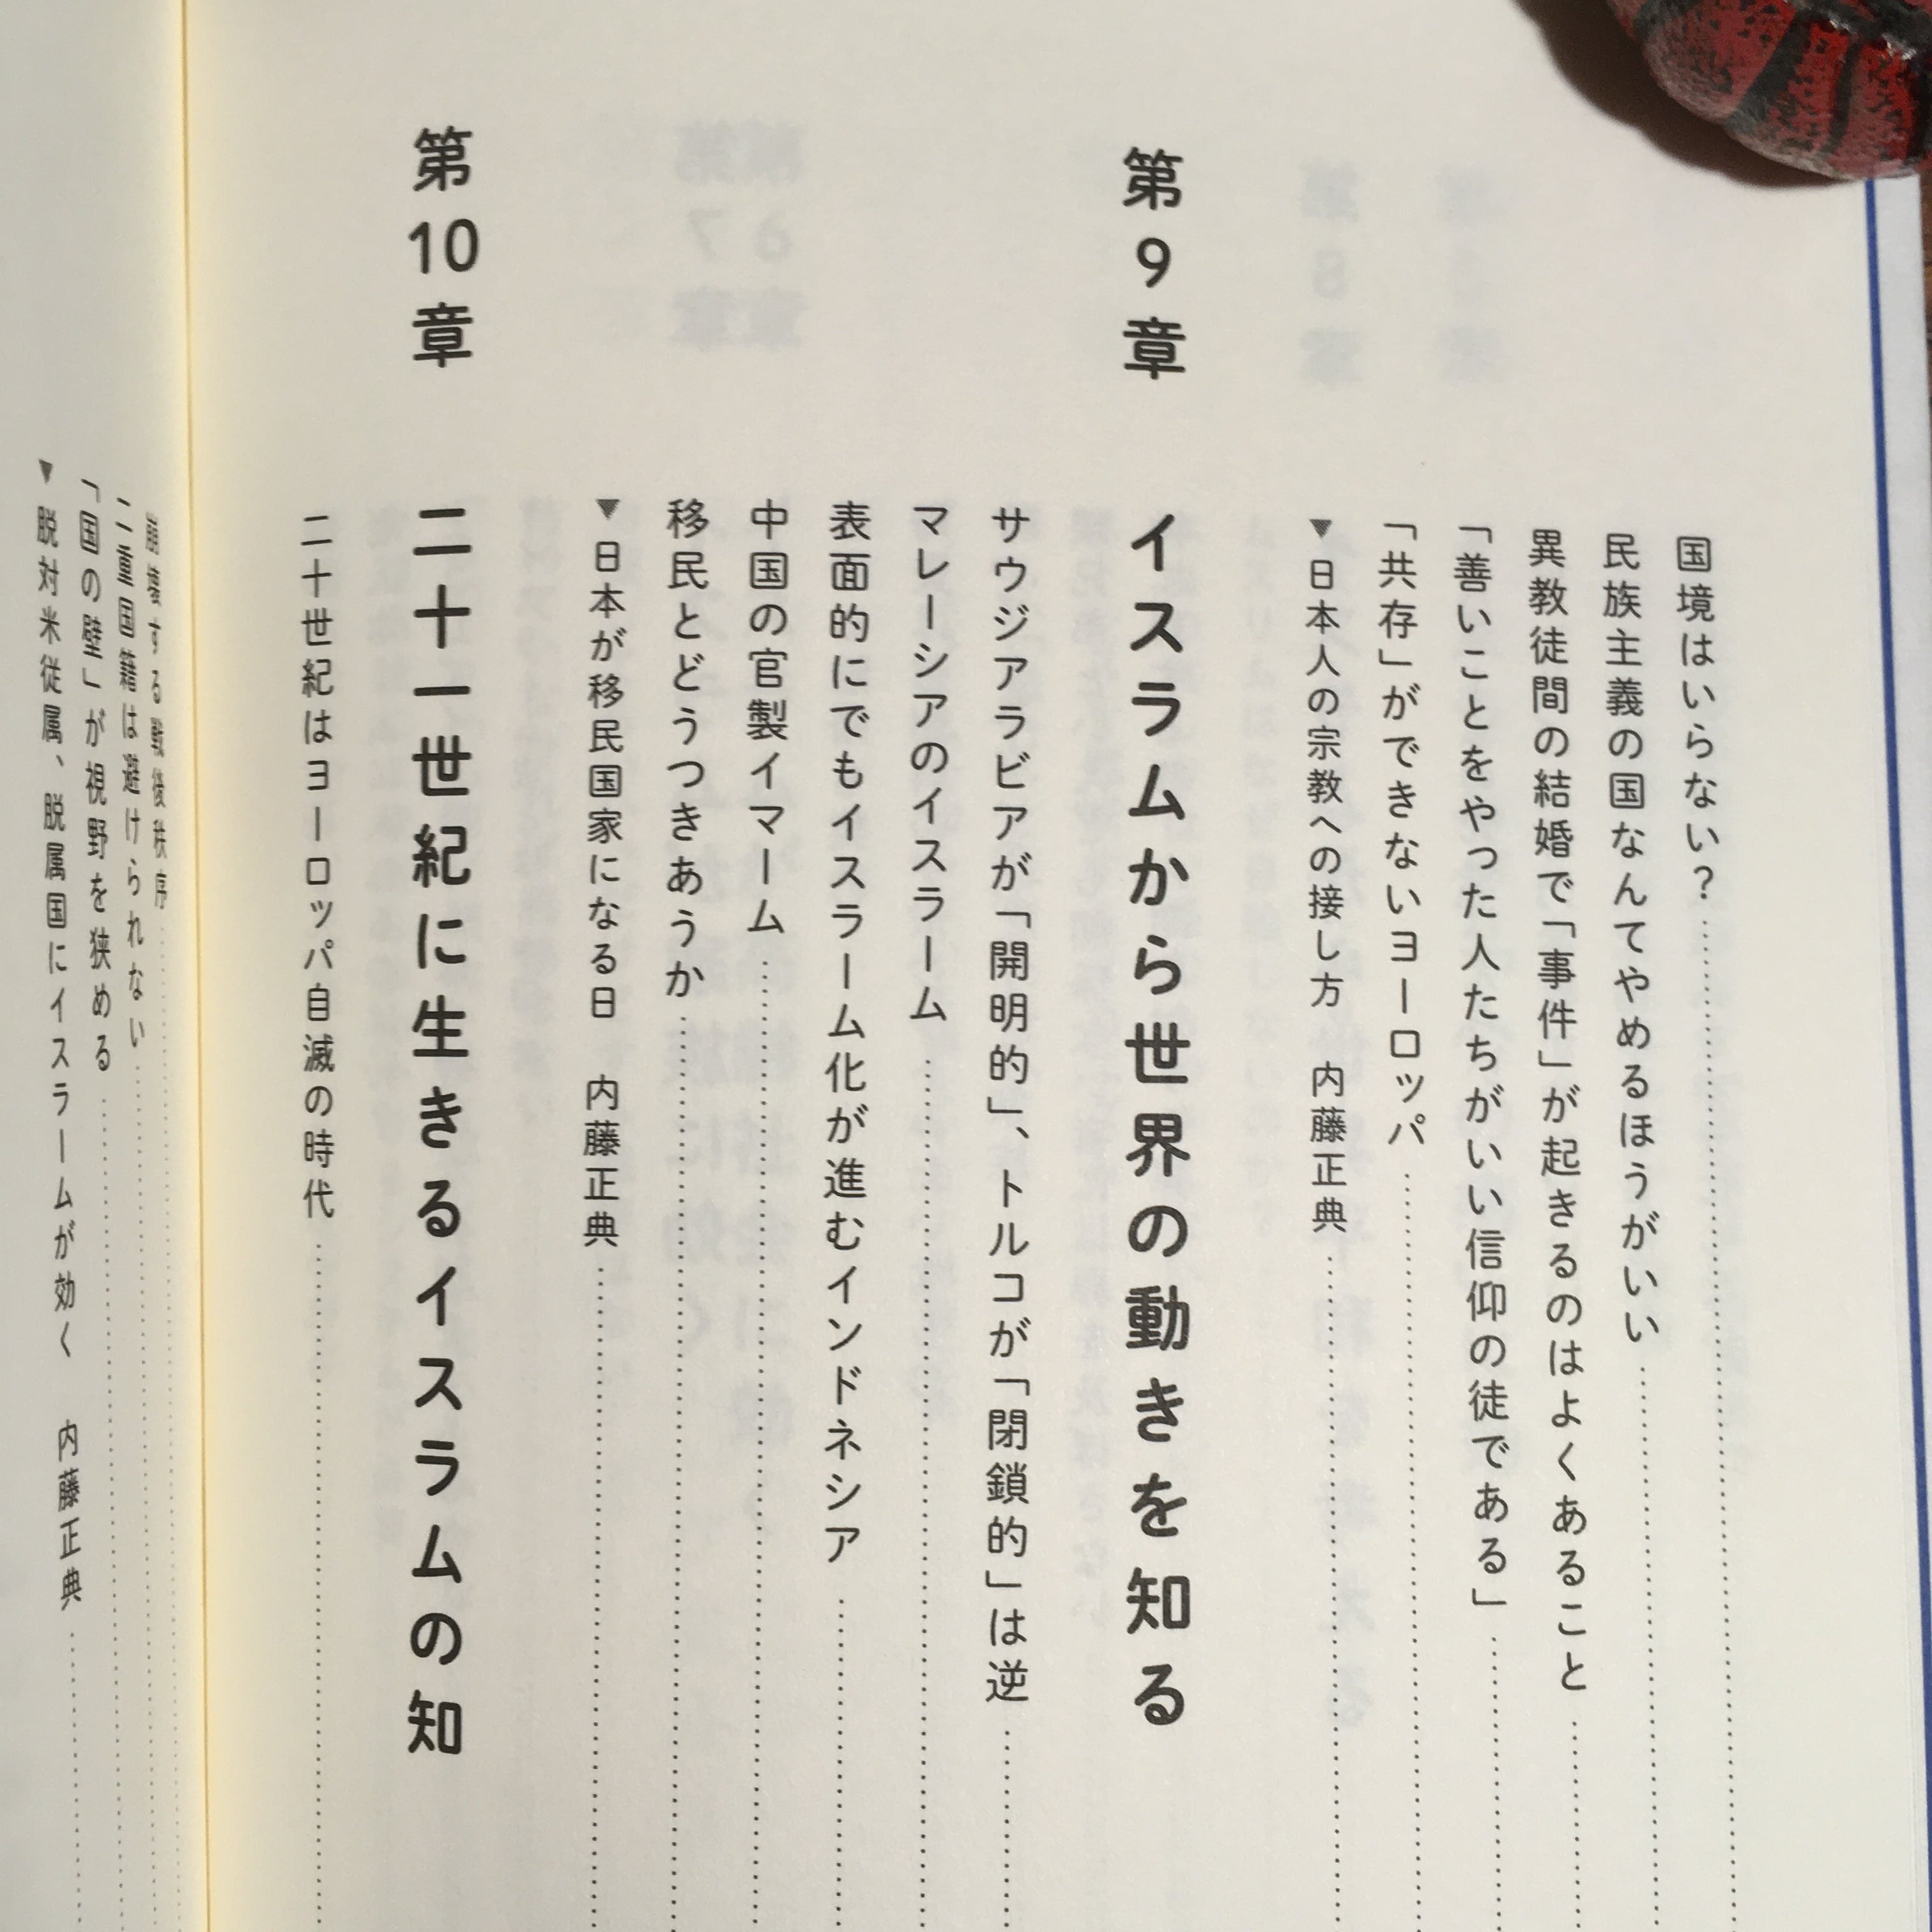 国境はいらない？
民族主義の国なんてやめるほうがいい
異教徒間の結婚で「事件」が起きるのはよくあること
「善いことをやった人たちがいい信仰の徒である」
「共存」ができないヨーロッパ
▼日本人の宗教への接し方　内藤正典
第9章　イスラムから世界の動きを知る
サウジアラビアが「開明的」、トルコが「閉鎖的」は逆
マレーシアのイスラーム
表面的にでもイスラーム化が進むインドネシア
中国の官製イマーム
移民とどうつきあうか
▼日本が移民国家になる日　内藤正典
第10章　二十一世紀に生きるイスラムの知
二十世紀はヨーロッパ自滅の時代
崩壊する戦後秩序
二重国籍は避けられない
「国の壁」が視野を狭める
▼脱対米従属、脱属国にイスラームが効く　内藤正典